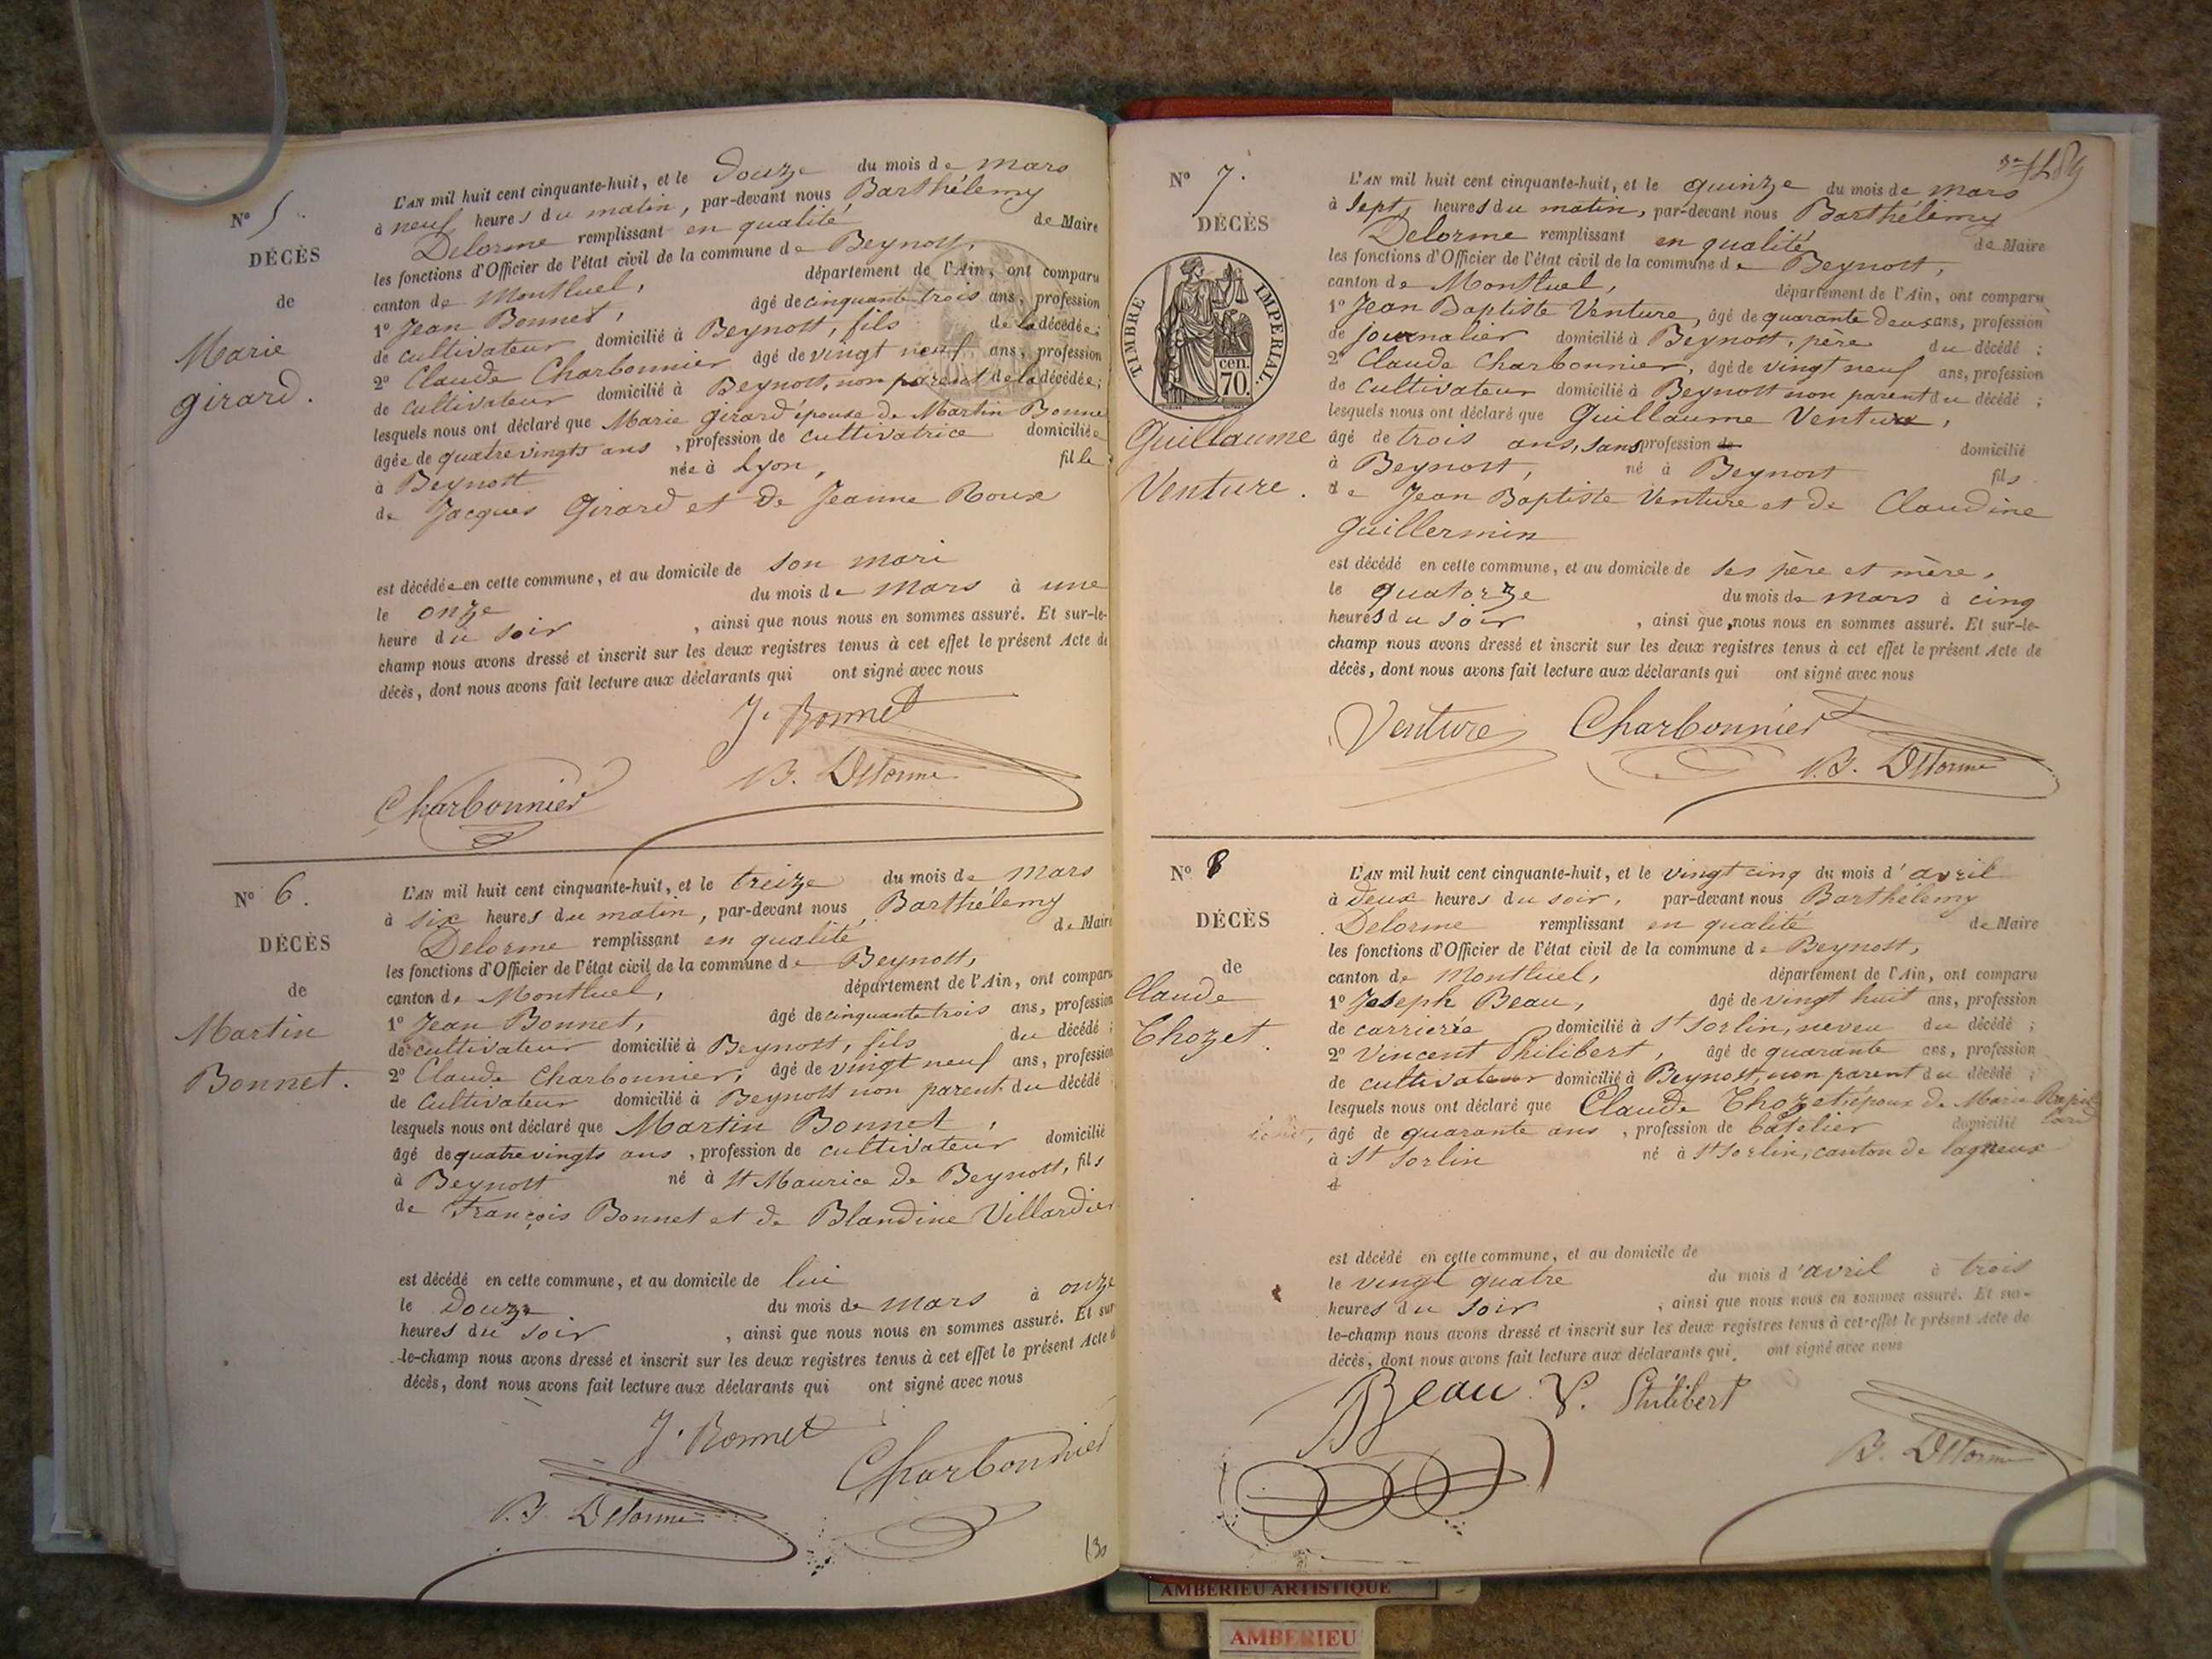 N° 5.
DÉCÈS
de
Marie
Girard.
L'AN mil huit cent cinquante-huit, et le Douze du mois de mars
à neuf heures du matin, par-devant nous Barthélemy
Delorme remplissant en qualité de Maire
les fonctions d'Officier de l'état civil de la commune de Beynost,
canton de Montluel, département de l'Ain, ont comparu
1° Jean Bonnet, âgé de cinquante trois ans, profession
de cultivateur domicilié à Beynost, fils de la décédée;
2° Claude Charbonnier âgé de vingt neuf ans, profession
de cultivateur domicilié à Beynost, non parent de la décédée;
lesquels nous ont déclaré que Marie Girard épouse de Martin Bonne
âgée de quatre vingts ans, profession de cultivatrice domiciliée
à Beynost née à Lyon, fille
de Jacques Girard et de Jeanne Roux
est décédée en cette commune, et au domicile de son mari
le onze du mois de Mars à une
heure du soir, ainsi que nous nous en sommes assuré. Et sur-le-
champ nous avons dressé et inscrit sur les deux registres tenus à cet effet le présent Acte de
décès, dont nous avons fait lecture aux déclarants qui ont signé avec nous
J. Bonnet
B. Delorme
Charbonnier
N° 6.
DÉCÈS
de
Martin
Bonnet.
L'AN mil huit cent cinquante-huit, et le treize du mois de Mars
à six heures du matin, par-devant nous Barthélemy
Delorme remplissant en qualité de Maire
les fonctions d'Officier de l'état civil de la commune de Beynost,
canton de Montluel, département de l'Ain, ont comparu
1° Jean Bonnet, âgé de cinquante trois ans, profession
de cultivateur domicilié à Beynost, fils du décédé;
2° Claude Charbonnier, âgé de vingt neuf ans, profession
de Cultivateur domicilié à Beynost non parent du décédé
lesquels nous ont déclaré que Martin Bonnet,
âgé de quatre vingts ans, profession de cultivateur domicilié
à Beynost né à St Maurice de Beynost, fils
de François Bonnet et de Blandine Villardier
est décédé en cette commune, et au domicile de lui
le Douze du mois de mars à onze
heures du soir, ainsi que nous nous en sommes assuré. Et sur
-le-champ nous avons dressé et inscrit sur les deux registres tenus à cet effet le présent Acte d
décès, dont nous avons fait lecture aux déclarants qui ont signé avec nous
J. Bonnet
Charbonnier
B. Delorme
N° 7.
DÉCÈS
TIMBRE IMPÉRIAL.
cen.
70.
Guillaume
Venture.
L'AN mil huit cent cinquante-huit, et le quinze du mois de mars
à sept, heures du matin, par-devant nous Barthélemy
Delorme remplissant en qualité de Maire
les fonctions d'Officier de l'état civil de la commune de Beynost,
canton de Montluel, département de l'Ain, ont comparu
1° Jean Baptiste Venture, âgé de quarante deux ans, profession
de journalier domicilié à Beynost, père du décédé;
2° Claude Charbonnier, âgé de vingt neuf ans, profession
de cultivateur domicilié à Beynost non parent du décédé;
lesquels nous ont déclaré que Guillaume Venture,
âgé de trois ans, sans profession de domicilié
à Beynost, né à Beynost fils
de Jean Baptiste Venture et de Claudine
Guillermin
est décédé en cette commune, et au domicile de ses père et mère,
le quatorze du mois de mars à cinq
heures du soir, ainsi que nous nous en sommes assuré. Et sur-le-
champ nous avons dressé et inscrit sur les deux registres tenus à cet effet le présent Acte de
décès, dont nous avons fait lecture aux déclarants qui ont signé avec nous
Venture Charbonnier
B. Delorme
N° 8
DÉCÈS
de
Claude
Thozet.
L'AN mil huit cent cinquante-huit, et le vingt cinq du mois d'avril
à Deux heures du soir, par-devant nous Barthélemy
Delorme remplissant en qualité de Maire
les fonctions d'Officier de l'état civil de la commune de Beynost,
canton de Montluel, département de l'Ain, ont comparu
1° Joseph Beau, âgé de vingt huit ans, profession
de carrière domicilié à St Sorlin, neveu du décédé;
2° Vincent Philibert, âgé de quarante ans, profession
de cultivateur domicilié à Beynost, non parent du décédé;
lesquels nous ont déclaré que Claude Thozet époux de Marie
âgé de quarante ans, profession de batelier domicilié
à St Sorlin né à St Sorlin, canton de Lagneux
est décédé en cette commune, et au domicile de
le vingt quatre du mois d'avril à trois
heures du soir, ainsi que nous nous en sommes assuré. Et sur-
le-champ nous avons dressé et inscrit sur les deux registres tenus à cet effet le présent Acte de
décès, dont nous avons fait lecture aux déclarants qui ont signé avec nous
Beau V. Philibert
B. Delorme
AMBERIEU ARTISTIQUE
AMBERIEU